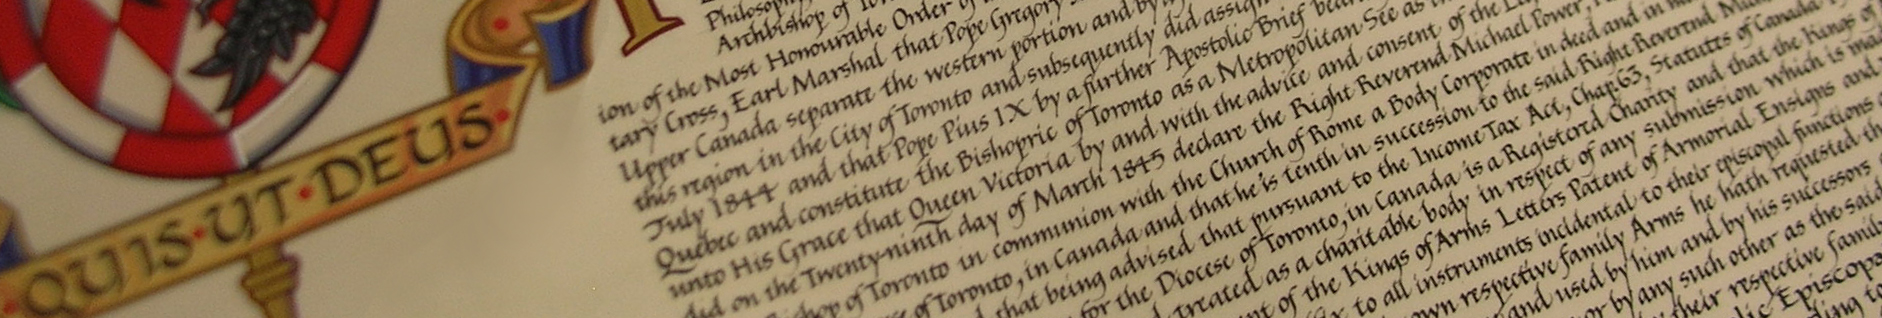 QUIS·UT·DEUS·
Philosophy
Archbishop of
ion of the Most Honourable Order of
tary Cross, Earl Marshal that Pope Gregory
Upper Canada separate the western portion and by
this region in the City of Toronto and subsequently did assign
July 1844 and that Pope Pius IX by a further Apostolic Brief
Québec and constitute the Bishopric of Toronto as a Metropolitan See as
unto His Grace that Queen Victoria by and with the advice and consent of the
did on the Twenty-ninth day of March 1845 declare the Right Reverend Michael Power,
Bishop of Toronto in communion with the Church of Rome a Body Corporate in deed and in
of Toronto, in Canada and that he is tenth in succession to the said Right Reverend
that being advised that pursuant to the Income Tax Act, Chap.63, Statutes of Canada
for the Diocese of Toronto, in Canada is a Registered Charity and that the Kings of
treated as a charitable body in respect of any submission which is
of the Kings of Arms Letters Patent of Armorial Ensigns and
to all instruments incidental to their episcopal functions
own respective family Arms he hath requested
and used by him and by his successors
or by any such other as the said
their respective
Episcopa